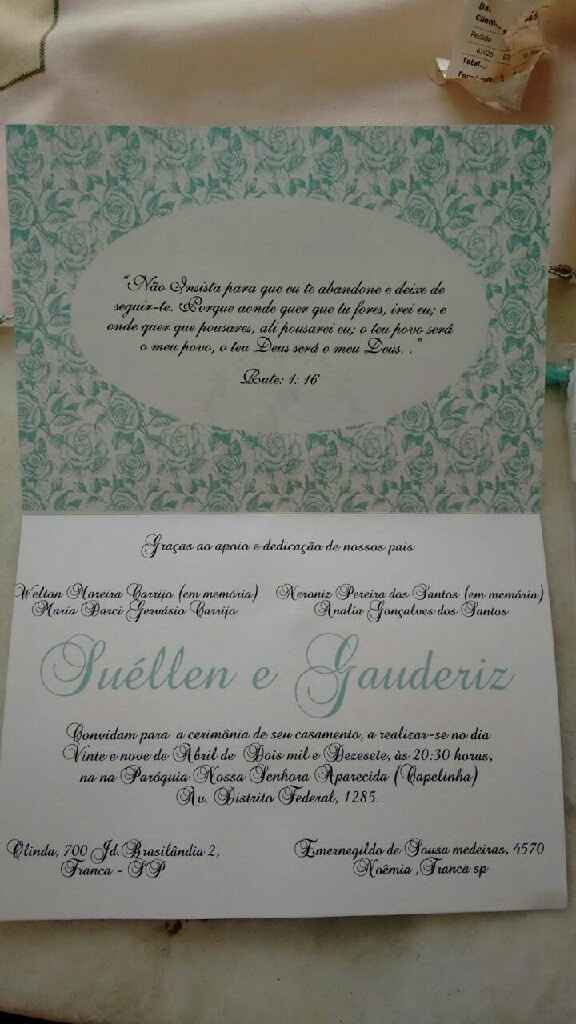 Ds.
Pedido
"Não Insista para que eu te abandone e deixe de
seguir-te. Porque aonde quer que tu fores, irei eu; e
onde quer que pousares, ali pousarei eu; o teu povo será
o meu povo, o teu Deus será o meu Deus. ."
Rute: 1: 16
Graças ao apoio e dedicação de nossos pais
Welton Moreira Carrijo (em memória)
Neroniz Pereira dos Santos (em memória)
Maria Darcé Gervásio Carrijo
Analia Gonçalves dos Santos
Suéllen e Gauderiz
Convidam para a cerimônia de seu casamento, a realizar-se no dia
Vinte e nove de Abril de Dois mil e Dezesete, às 20:30 horas,
na na Paróquia Nossa Senhora Aparecida (Capelinha)
Av. Distrito Federal, 1285.
Olinda, 700 Jd. Brasilândia 2,
Franca - SP
Emernegildo de Sousa medeiras, 4570
Noêmia ,Franca sp